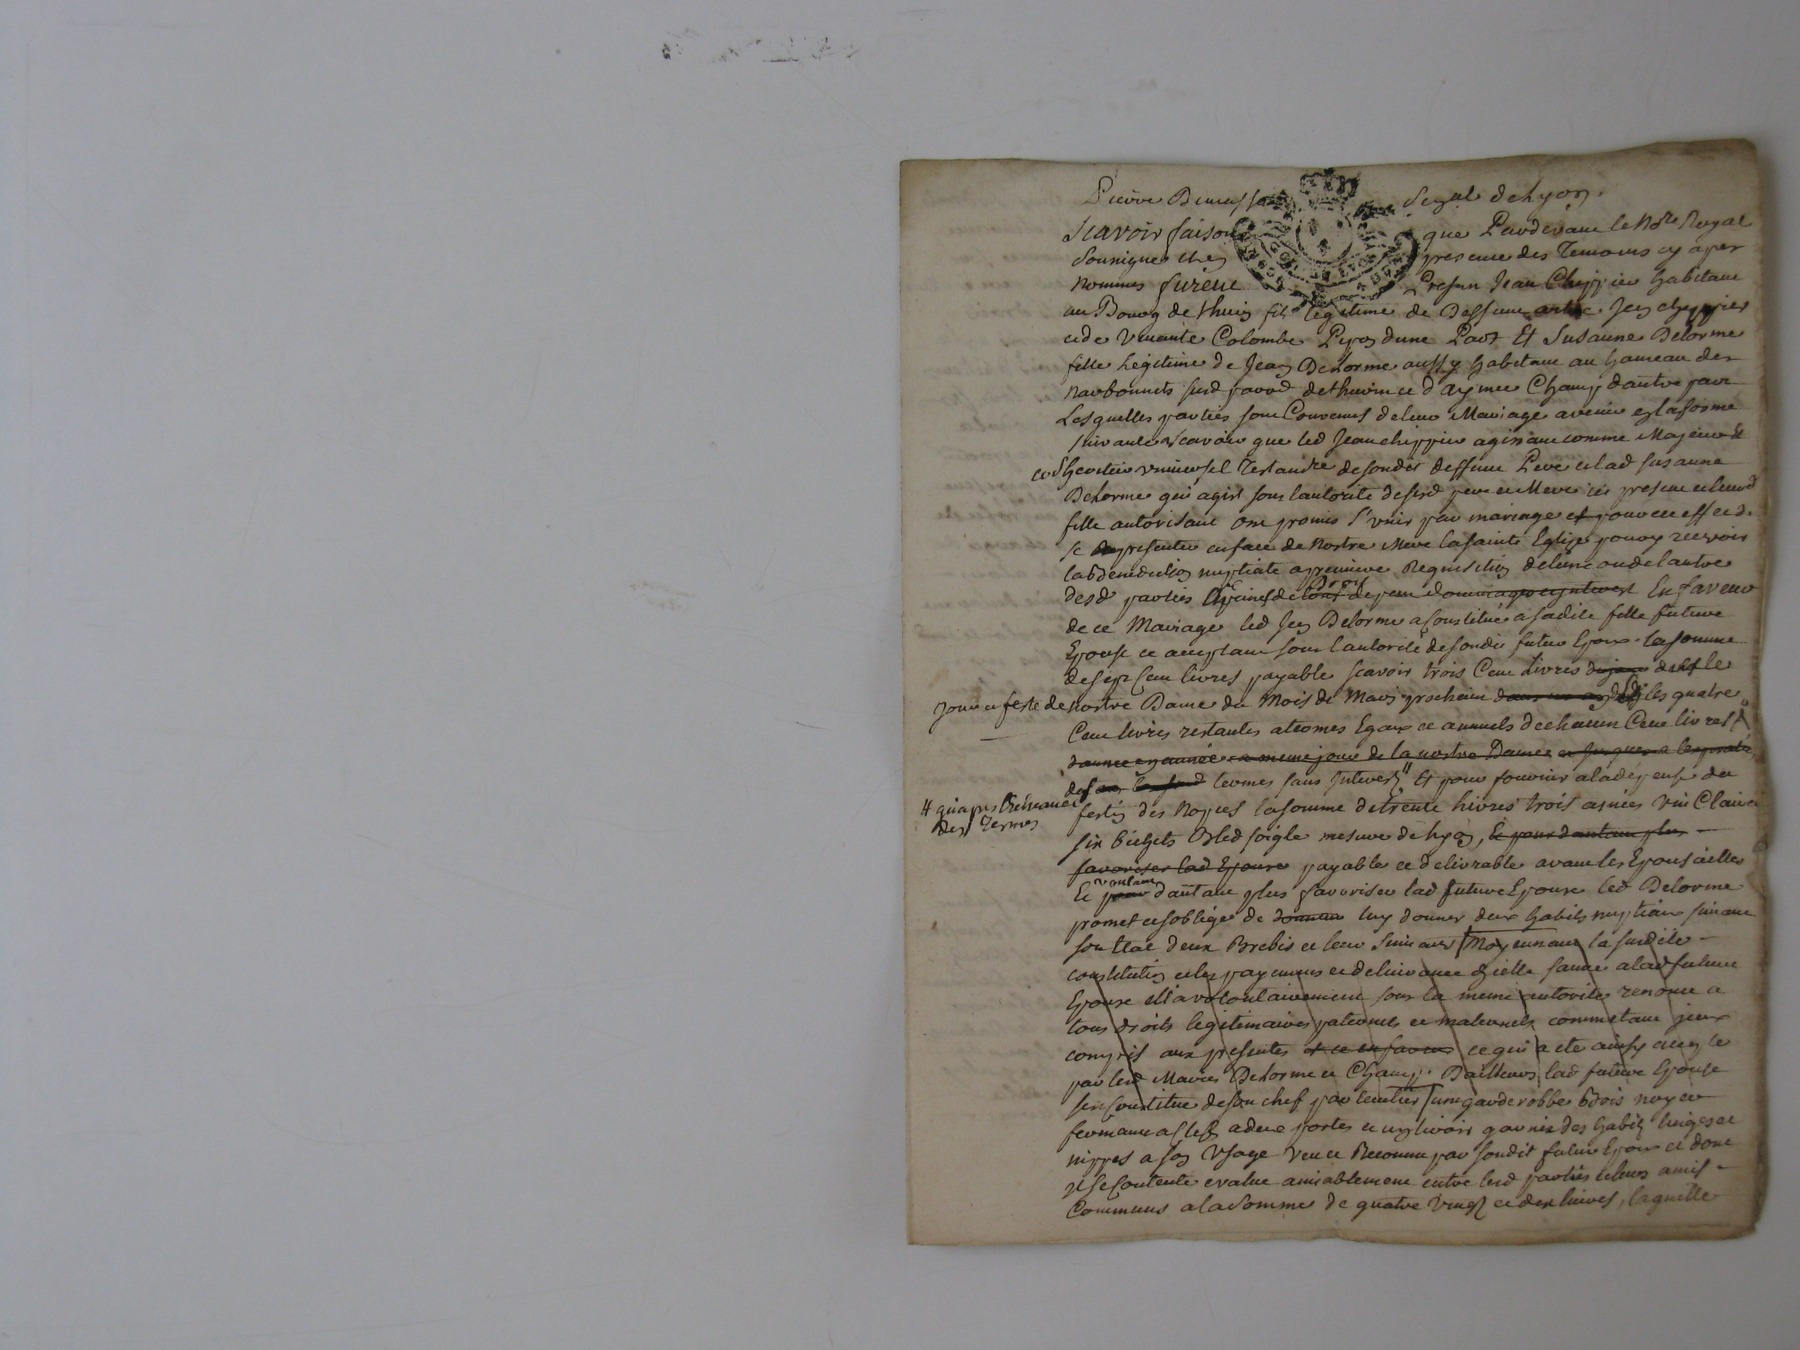 Pierre Dumas Segal de Lyon.
Scavoir faisons que Pardevant le No.re Royal
Sousigné et en presence des Temoins cy apres
Nommes furent Presen Jean Chippier habitant
au Bourg de thurin fils legitime de Deffunt autre Jean chippier
et de Vivante Colombe d'une Part Et Susanne Delorme
fille Legitime de Jean DeLorme aussy habitant au hameau des
Narbonnets susd parod de thurin et d'aymee Champ d'autre part
Lesquelles parties sont Convenus de leur Mariage avenir en la forme
suivante scavoir que led Jean chippier agissant comme Majeur et
cod heritier universel Testam.re de sondit deffunt Pere et lad Susanne
DeLorme qui agist sous l'autorité de sesd pere et Mere icy presens et leurd
fille autorisant ont promis s'unir par mariage et pour cet effet de
se presenter en face de Nostre Mere la sainte Eglise pour y recevoir
la benediction nuptiale a premiere Requisition de l'une ou de l'autre
desd parties a peine de tous Droit depens dommages et interest En faveur
de ce Mariage led Jean Delorme a constitué a sadite fille future
Epouse ce acceptant sous l'autorité de sondit futur Epoux la somme
de sept Cent livres payable scavoir trois Cent Livres le
jour et feste de nostre Dame du Mois de Mars prochain dans un an les quatre
Cent livres restantes a termes Egaux et annuels de chacun Cent livres
d'année en année a meme jour de la nostre Dame et jusques a
des termes sans Interest Et pour fournir a la depense du
4 qu'apres Echeance
des Termes
festin des Noces la somme de trente Livres trois asnées vin Clairet
six bichets Bled seigle mesure de Lyon, Et pour d'autant plus
favoriser lad Epouse payable et delivrable avant les Epousailles
Et pour voulant d'autant plus favoriser lad future Epouse led Delorme
promet et s'oblige de donner luy donner deux habits nuptiaux suivant
son Etat deux Brebis et leur suivans Moyennant la susdite
constitution et les payemens et delivrance d'icelle faitte a lad future
Epouse Ell'a volontairement sous la meme autorité renoncé a
tous droits legitimaires paternels et maternels
compris aux presentes et ce en faveur ce qui a eté ainsy accepté
par lesd Maries DeLorme et Champ. D'ailleurs lad future Epouse
se constitue de son chef par une garderobbe bois noyer
fermant a clef a deux portes et un tiroir garnie des habits linges et
nippes a son Usage Veu et Reconnu par sondit futur Epoux et dont
il se Contente evalué amiablement entre lesd parties et leurs amis
Communs a la somme de quatre vingt et dix livres, laquelle